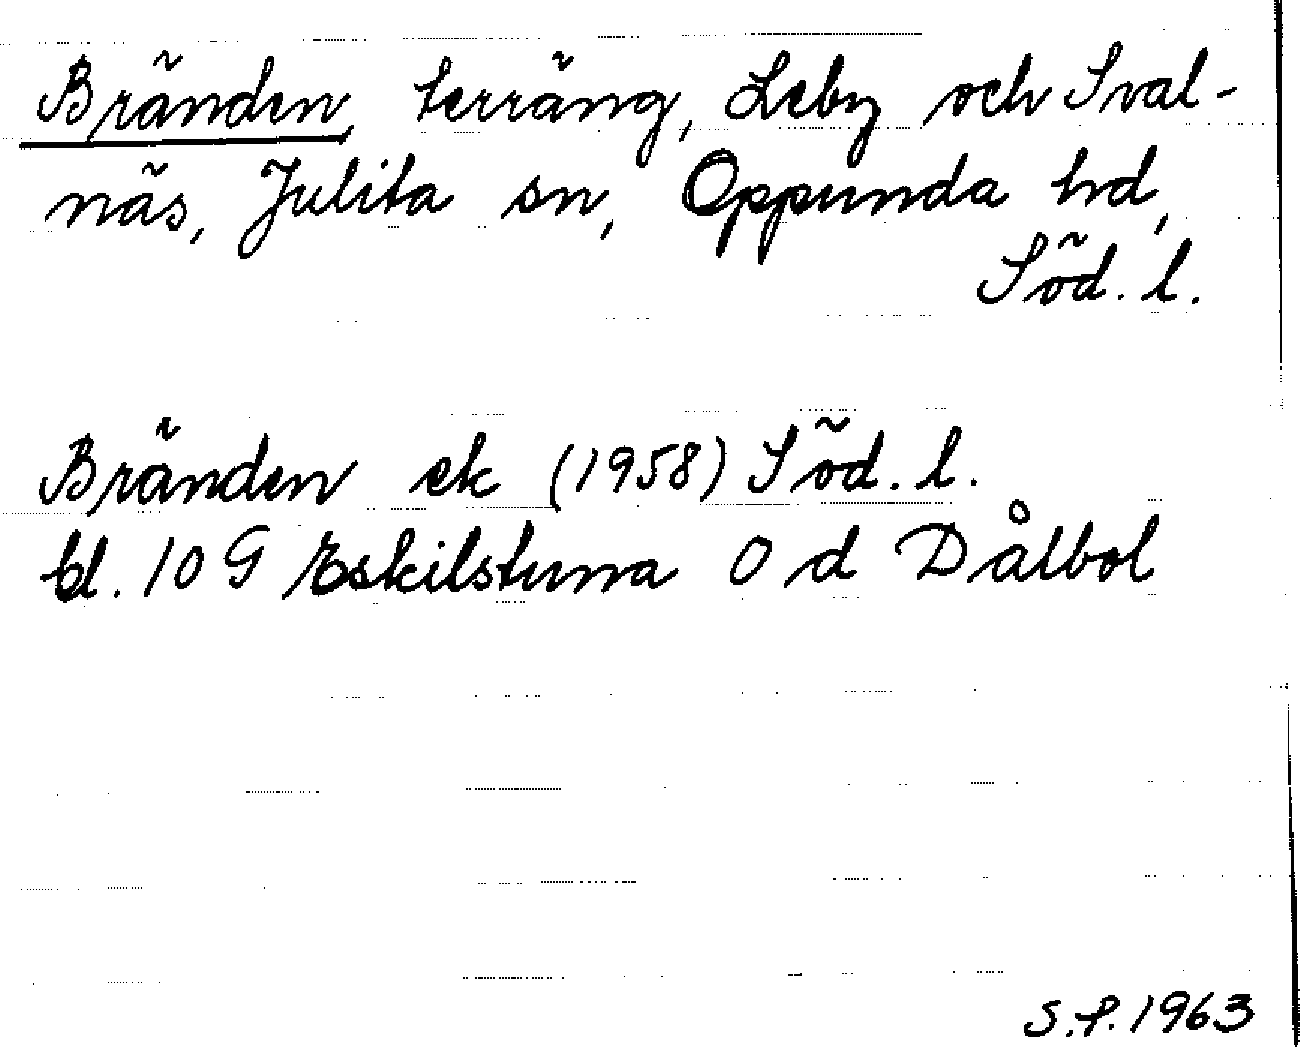 Bränden, terräng, Leby och Sval-
näs, Julita sn, Oppunda hd,
Söd. l.
Bränden ek (1958) Söd. l.
bl. 10 G Eskilstuna O d Dålbol
S.P. 1963